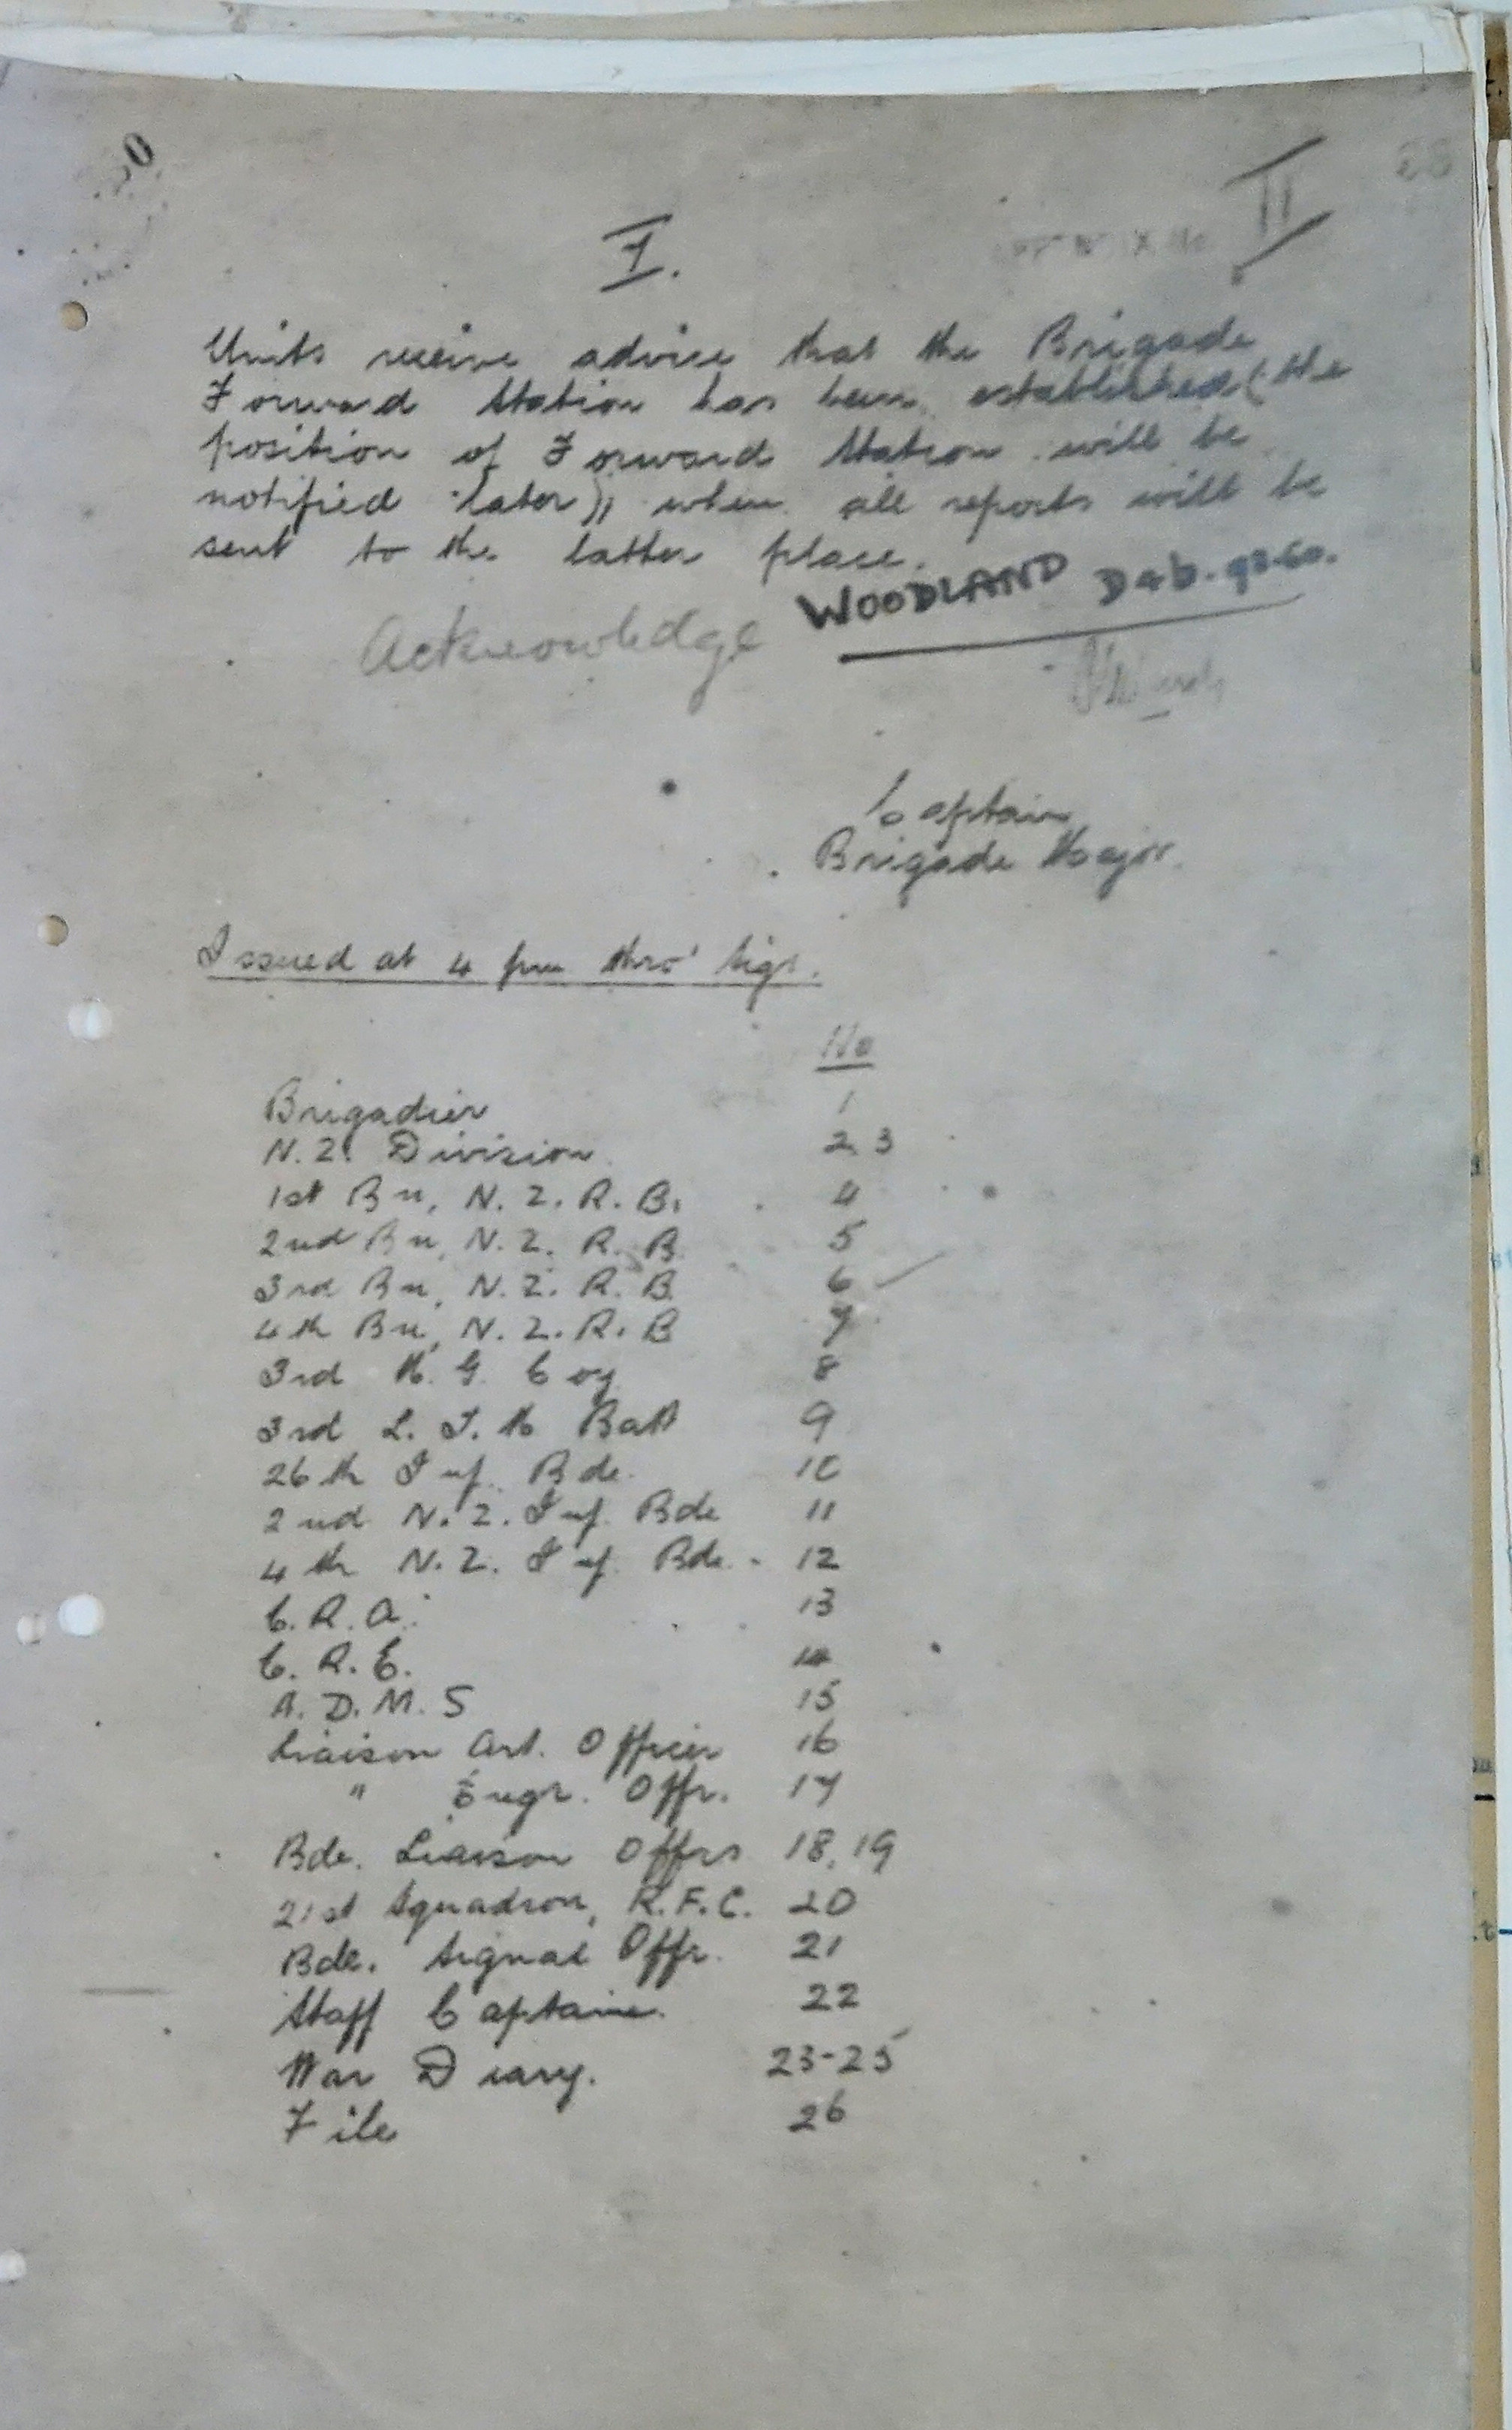 II
7.
Units receive advice that the Brigade
Forward Station has been established (the
position of Forward Station will be
notified later), when all reports will be
sent to the latter place.
WOODLAND
Acknowledge
Captain
Brigade Major.
Issued at 4 pm thro' Sigs.
No
Brigadier 1
N.Z. Division 2, 3
1st Bn, N.Z.R.B. 4
2nd Bn, N.Z.R.B. 5
3rd Bn, N.Z.R.B. 6
4th Bn, N.Z.R.B 7
3rd M.G. Coy 8
3rd L.T.M Batt 9
26th Inf. Bde. 10
2nd N.Z. Inf. Bde 11
4th N.Z. Inf. Bde. 12
C.R.A. 13
C.R.E. 14
A.D.M.S 15
Liaison Art. Officer 16
" Engr. Offr. 17
Bde. Liaison Offrs 18, 19
21st Squadron, R.F.C. 20
Bde. Signal Offr. 21
Staff Captain. 22
War Diary. 23-25
File 26